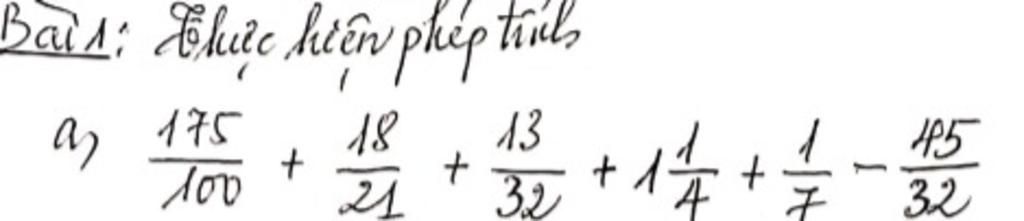 Bài 1: Thực hiện phép tính
a) 175/100 + 18/21 + 13/32 + 1 1/4 + 1/7 - 45/32